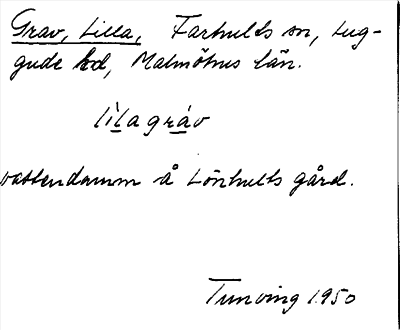 Grav, Lilla, Farhults sn, Lug-
gude hd, Malmöhus län.
lìlagráv
vattendamm å Lönhults gård.
Tunving 1950